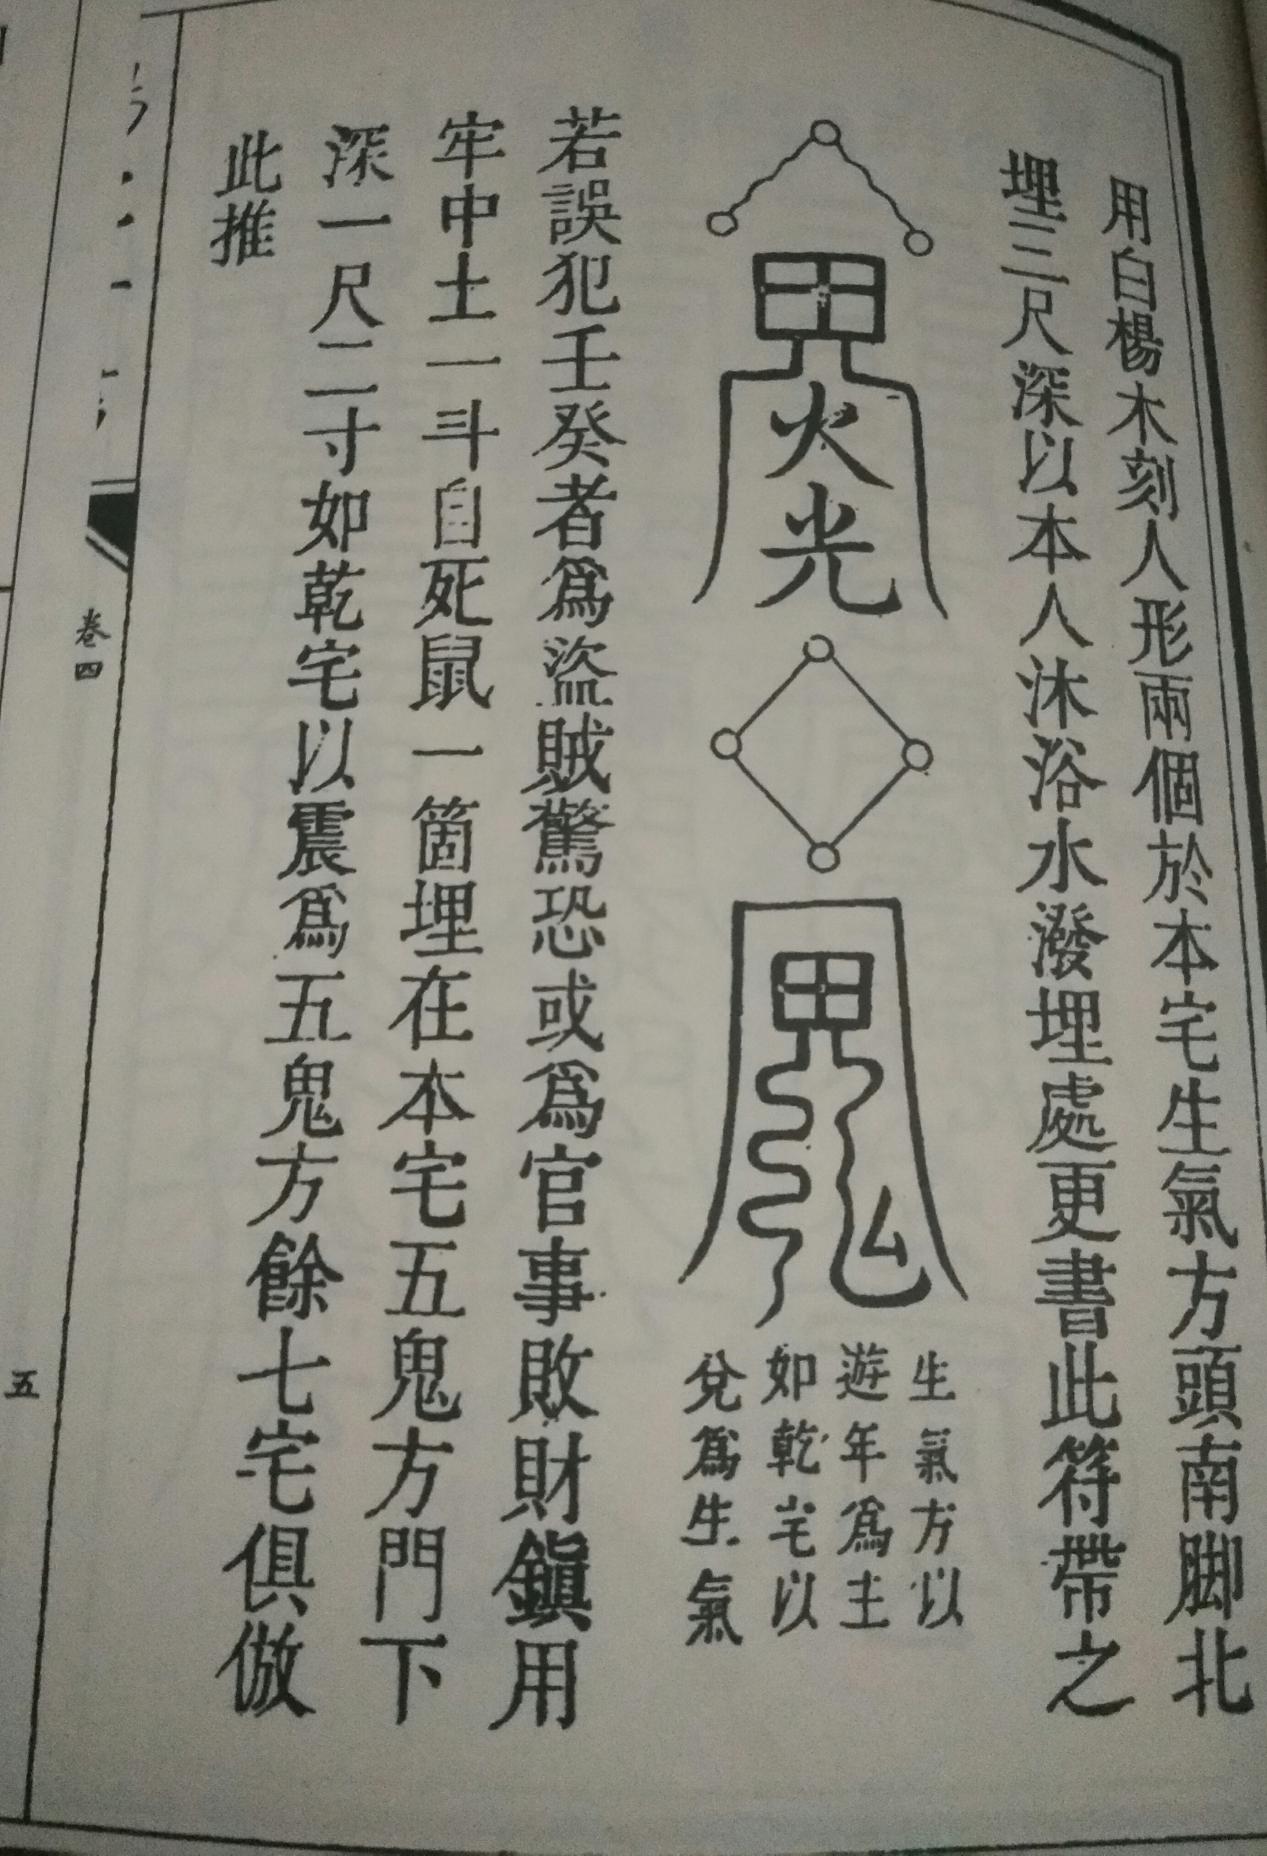 用白楊木刻人形兩個於本宅生氣方頭南脚北
埋三尺深以本人沐浴水潑埋處更書此符帶之
火光
生氣方以
遊年為主
如乾宅以
兌為生氣
若誤犯壬癸者為盜賊驚恐或為官事敗財鎭用
牢中土一斗自死鼠一箇埋在本宅五鬼方門下
深一尺二寸如乾宅以震為五鬼方餘七宅俱倣
此推
卷四
五